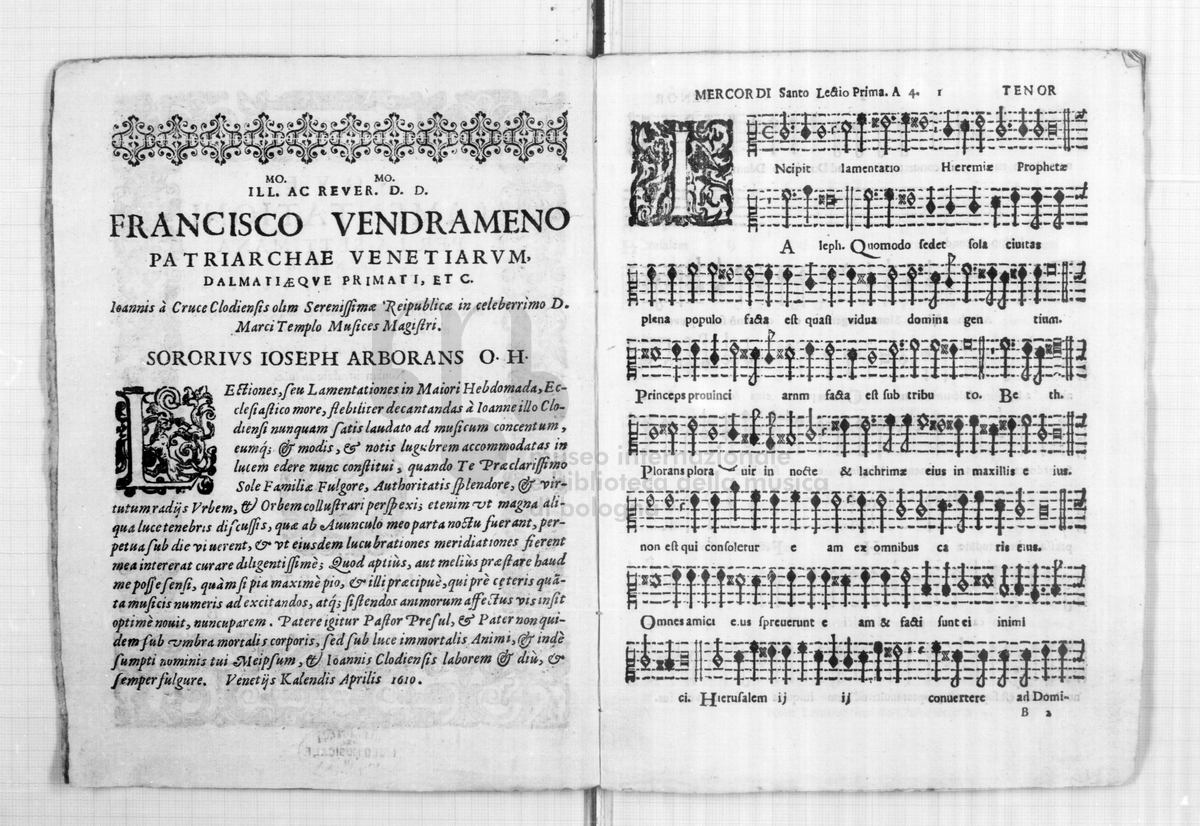 MO. MO.
ILL. AC REVER. D. D.
FRANCISCO VENDRAMENO
PATRIARCHAE VENETIARVM,
DALMATIÆQVE PRIMATI, ET C.
Ioannis à Cruce Clodiensis olim Serenissimæ Reipublicæ in celeberrimo D.
Marci Templo Musices Magistri.
SORORIVS IOSEPH ARBORANS O. H.
LEctiones, seu Lamentationes in Maiori Hebdomada, Ec-
clesiastico more, flebiliter decantandas à Ioanne illo Clo-
diensi nunquam satis laudato ad musicum concentum,
eumq; & modis, & notis lugubrem accommodatas in
lucem edere nunc constitui, quando Te Præclarissimo
Sole Familiæ Fulgore, Authoritatis splendore, & vir-
tutum radijs Vrbem, & Orbem collustrari perspexi; etenim vt magna ali-
qua luce tenebris discussis, quæ ab Auunculo meo parta noctu fuerant, per-
petua sub die viuerent, & vt eiusdem lucubrationes meridiationes fierent
mea intererat curare diligentissimè; Quod aptiùs, aut meliùs præstare haud
me posse sensi, quàm si pia maximè pio, & illi præcipuè, qui prè cęteris quã-
ta musicis numeris ad excitandos, atq; sistendos animorum affectus vis insit
optimè nouit, nuncuparem. Patere igitur Pastor Presul, & Pater non qui-
dem sub vmbra mortalis corporis, sed sub luce immortalis Animi, & indè
sumpti nominis tui Meipsum, & Ioannis Clodiensis laborem & diù, &
semper fulgure. Venetijs Kalendis Aprilis 1610.
MERCORDI Santo Lectio Prima. A 4. 1 TENOR
INcipit lamentatio Hieremiæ Prophetæ
A leph. Quomodo sedet sola ciuitas
plena populo facta est quasi vidua domina gen tium.
Princeps prouinci arnm facta est sub tribu to. Be th.
Plorans plora uir in nocte & lachrimæ eius in maxillis e ius.
non est qui consoletur e am ex omnibus ca ris eus.
Omnes amici e.us spreuerunt e am & facti sunt ei inimi
ci. Hierusalem ij ij conuertere ad Domi-
B 2
museo internazionale
e biblioteca della musica
di bologna